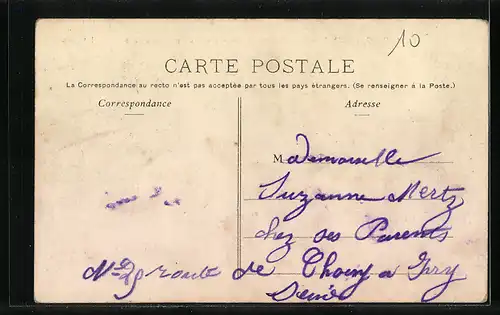 10
CARTE POSTALE
La Correspondance au recto n'est pas acceptée par tous les pays étrangers. (Se renseigner à la Poste.)
Correspondance
Adresse
Mademoiselle
Suzanne Mertz
chez ses Parents
route de Choisy a Ivry
Seine